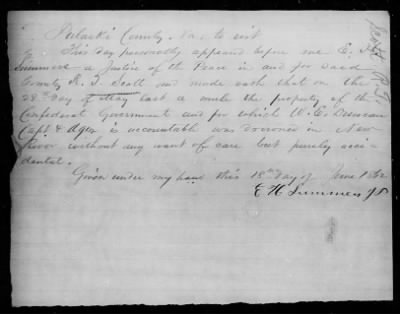 Pulaski County, Va. to wit
This day personally appeared before me E. H.
Summers a Justice of the Peace in and for said
County R. T. Scott and made oath that on the
28th Day of May last a mule the property of the
Confederate Government and for which W. E. Duncan
Capt & AQM is accountable was drowned in New
River without any want of care but purely acci-
dental.
Given under my hand this 18th Day of June 1862
E H Summers JP